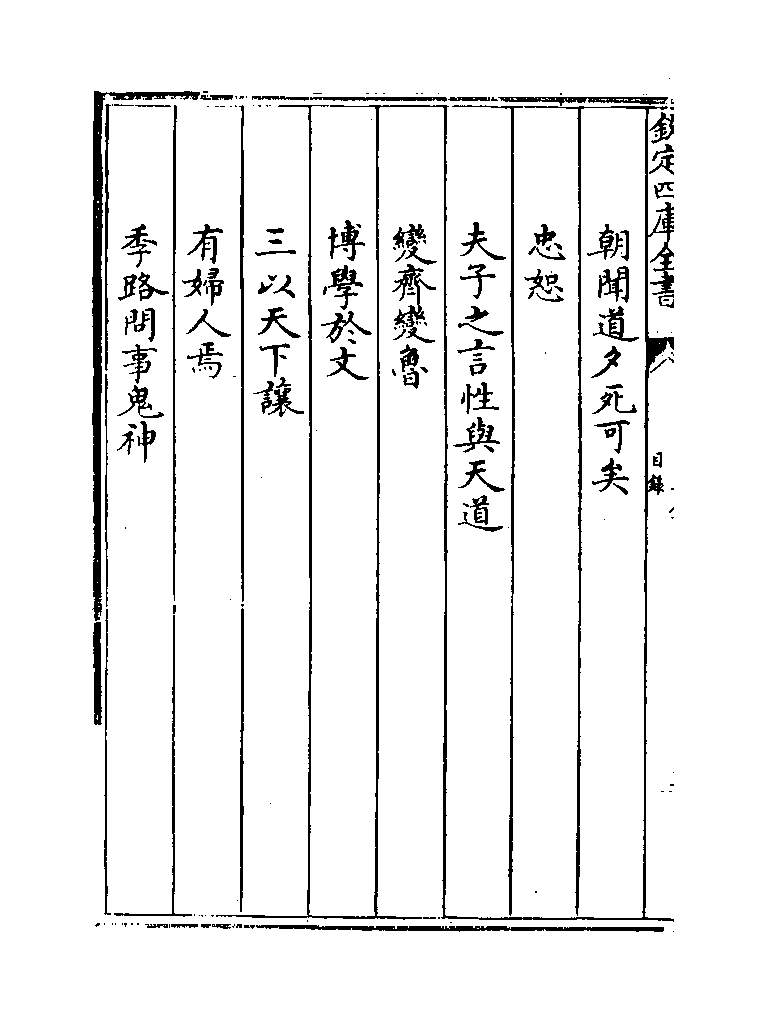 欽定四庫全書
目錄
朝聞道夕死可矣
忠恕
夫子之言性與天道
變齊變魯
博學於文
三以天下讓
有婦人焉
季路問事鬼神